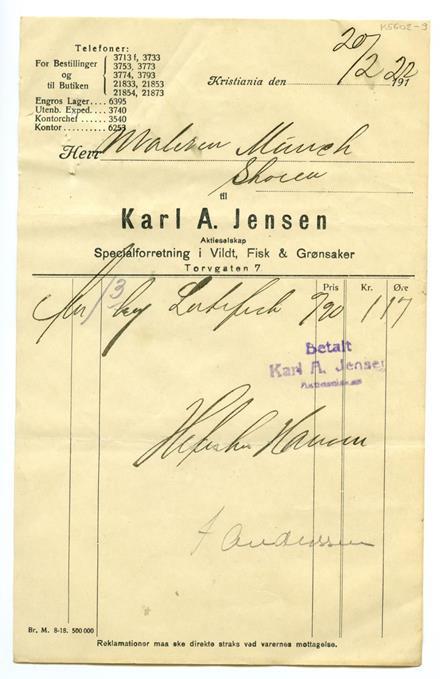 K5602-9
Telefoner:
For Bestillinger og til Butiken
3713 f, 3733
3753, 3773
3774, 3793
21833, 21853
21854, 21873
Engros Lager.... 6395
Utenb. Exped.... 3740
Kontorchef.... 3540
Kontor.... 6253
Kristiania den 20/12 22 191
Herr Maleren Munch
Skøien
til
Karl A. Jensen
Aktieselskap
Specialforretning i Vildt, Fisk & Grønsaker
Torvgaten 7
Pris Kr. Øre
kg Lutefisk 0/90 1 17
Betalt
Karl A. Jensen
Aktieselskap
Andersen
Br. M. 8-18. 500 000
Reklamationer maa ske direkte straks ved varernes mottagelse.